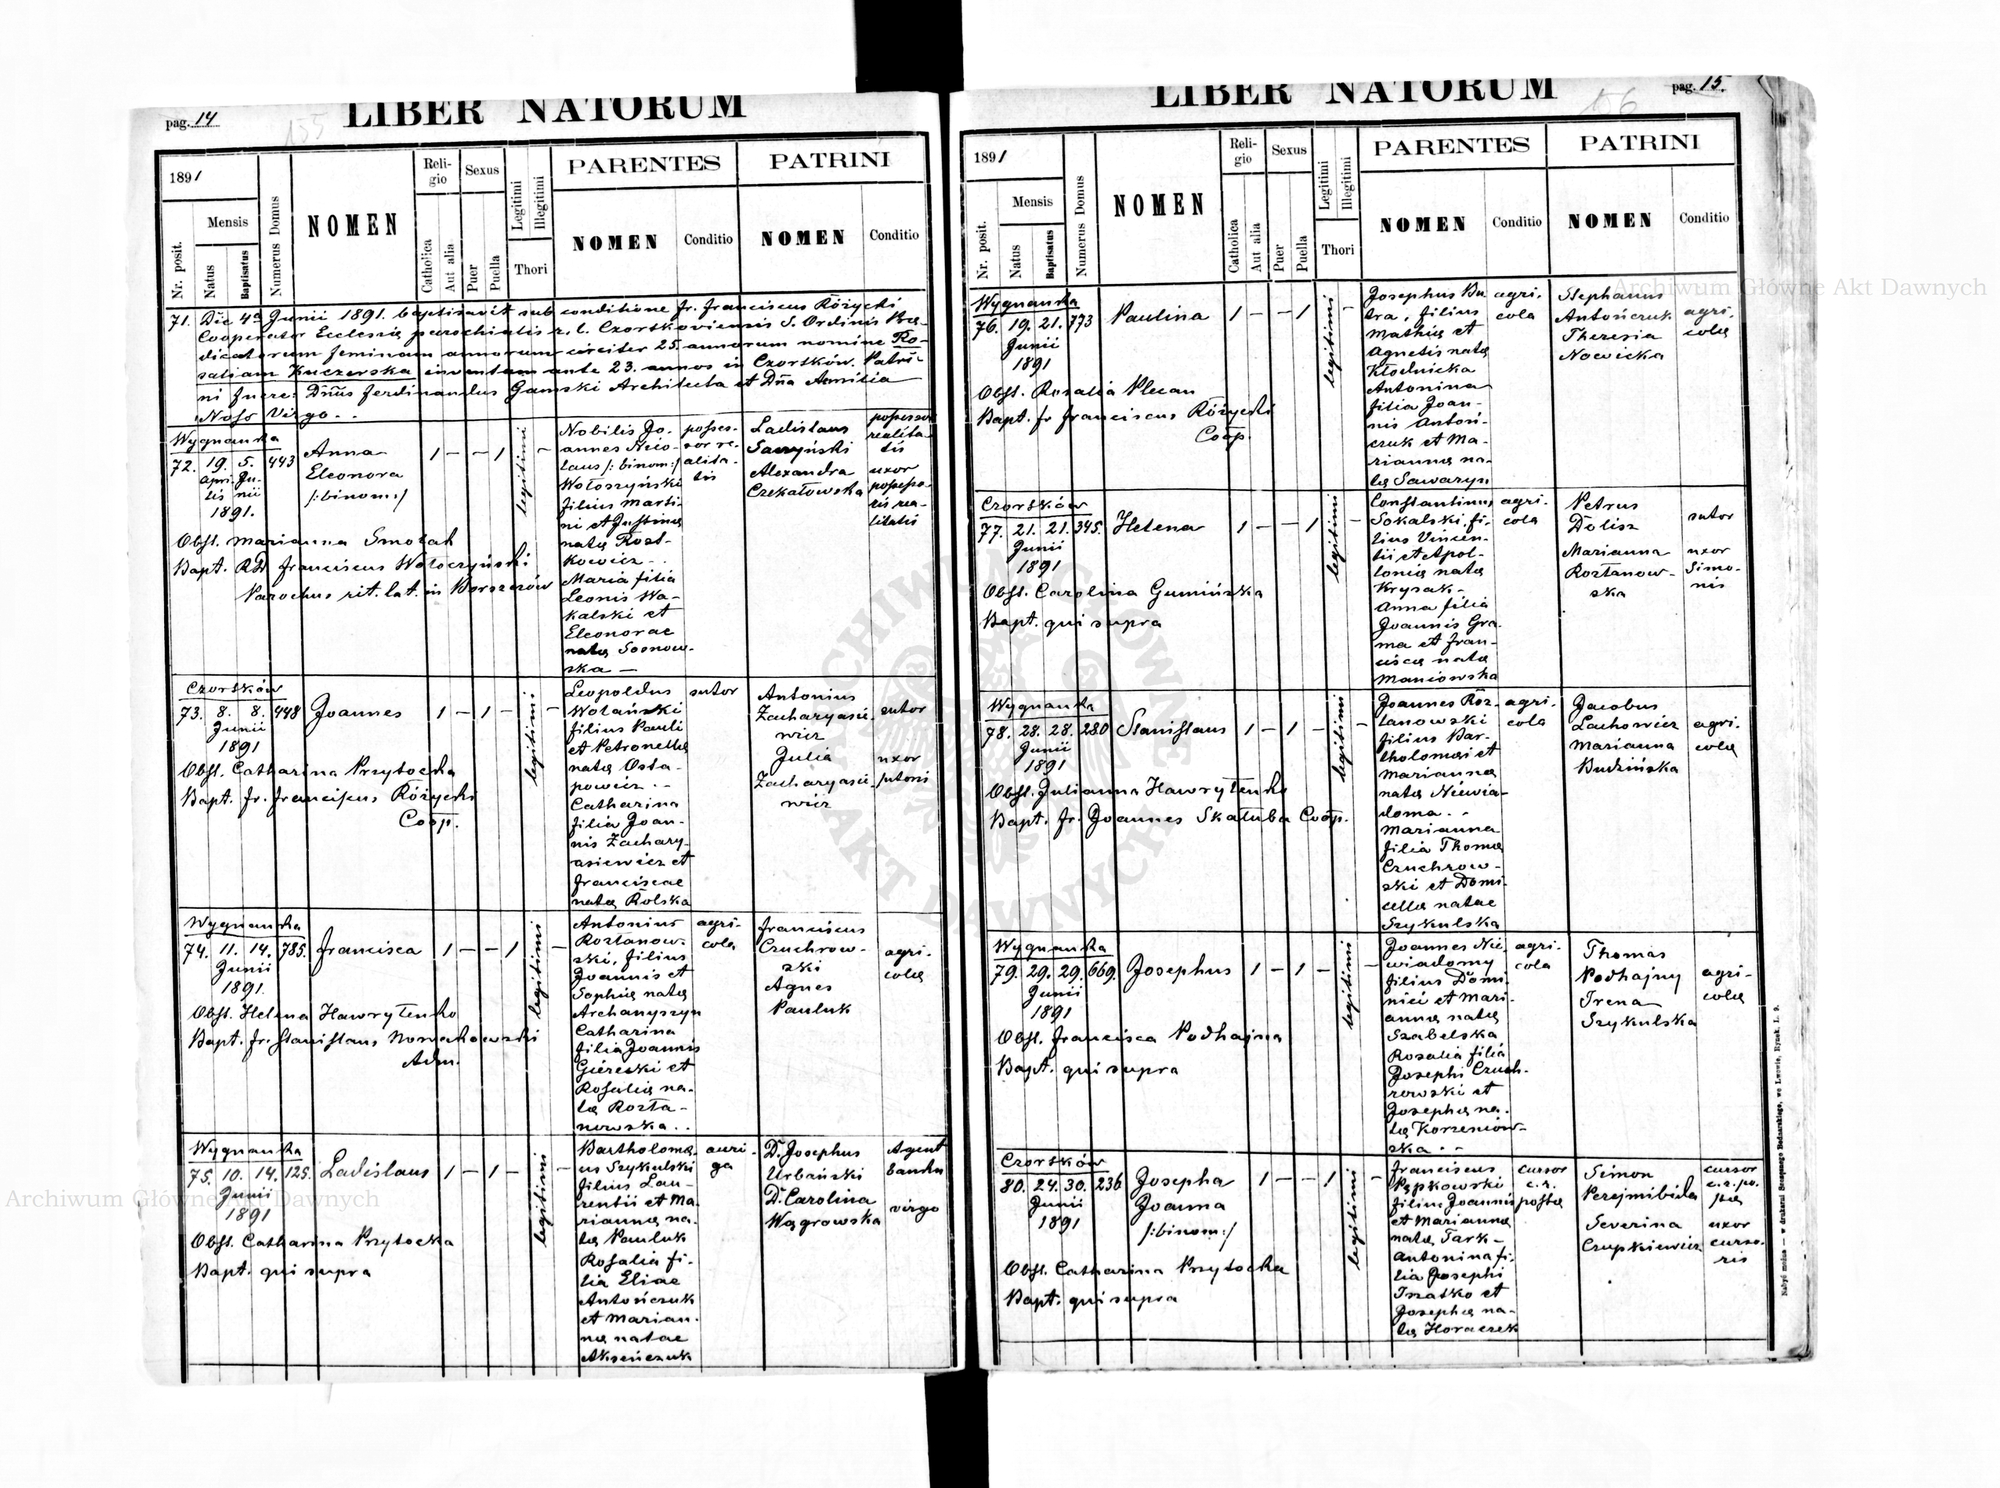 pag. 14
LIBER NATORUM
155
1891
Nr. posit.
Mensis
Natus
Baptisatus
Numerus Domus
NOMEN
Religio
Catholica
Aut alia
Sexus
Puer
Puella
Legitimi
Illegitimi
Thori
PARENTES
NOMEN
Conditio
PATRINI
NOMEN
Conditio
71. Die 4a Junii 1891 baptisavit sub conditione Fr. Franciscus Różycki
Cooperator Ecclesiæ parochialis r. l. Czortkoviensis S. Ordinis Præ-
dicatorum feminam annorum circiter 25. annorum nomine Ro-
saliam Kuczerska inventam ante 23. annos in Czortków. Patri-
ni fuere: Dnus Ferdinandus Gamski Architecta et Dna Amilia
Noss Virgo. -
Wygnanka
72. 19. 5. 443
Apri- Ju-
lis nii
1891.
Anna
Eleonora
/:binom:/
1 - - 1
legitimi
-
Nobilis Jo-
annes Nico-
laus /:binom:/
Wołoszyński
filius Marti-
ni et Justinæ
natæ Rost-
kowicz -
Maria filia
Leonis Wa-
kalski et
Eleonorae
natæ Sosnow-
ska -
posses-
sor re-
alita-
tis
Ladislaus
Saczyński
Alexandra
Czekałowska
possessor
realita-
tis
uxor
possesso-
ris rea-
litatis
Obst. Marianna Smolak
Bapt. RD Franciscus Wołoczyński
Parochus rit. lat. in Borszczów
Czortków
73. 8. 8. 448
Junii
1891
Joannes
1 - 1 -
legitimi
-
Leopoldus
Wolański
filius Pauli
et Petronellæ
natæ Osta-
powicz -
Catharina
filia Joan-
nis Zachary-
asiewicz et
Franciscae
natæ Rolska
sutor
Antonius
Zacharyasie-
wicz
Julia
Zacharyasie-
wicz
sutor
uxor
sutoris
Obst. Catharina Przytocka
Bapt. Fr. Franciscus Różycki
Coop.
Wygnanka
74. 11. 14. 785.
Junii
1891.
Francisca
1 - - 1
legitimi
-
Antonius
Roztanow-
ski, filius
Joannis et
Sophiæ natæ
Archanyszyn
Catharina
filia Joannis
Gierecki et
Rosaliæ na-
tæ Rozta-
nowska. .
agri-
cola
Franciscus
Czuchrow-
ski
Agnes
Pauluk
agri-
colæ
Obst. Helena Hawryłenko
Bapt. Fr. Stanislaus Nowakowski
Adm.
Wygnanka
75. 10. 14. 125.
Junii
1891
Ladislaus
1 - 1 -
legitimi
-
Bartholomæ-
us Szykulski
filius Lau-
rentii et Ma-
riannæ na-
tæ Pauluk
Rosalia fi-
lia Eliae
Antończuk
et Marian-
næ natae
Aksenczuk
auri-
ga
D. Josephus
Urbański
D. Carolina
Wągrowska
Agent
banku
virgo
Obst. Catharina Przytocka
Bapt. qui supra
pag. 15.
LIBER NATORUM
156
1891
Nr. posit.
Mensis
Natus
Baptisatus
Numerus Domus
NOMEN
Religio
Catholica
Aut alia
Sexus
Puer
Puella
Legitimi
Illegitimi
Thori
PARENTES
NOMEN
Conditio
PATRINI
NOMEN
Conditio
Wygnanka
76. 19. 21. 773
Junii
1891
Paulina
1 - - 1
legitimi
-
Josephus Ba-
tra, filius
Mathiæ et
Agnetis natæ
Kłodnicka
Antonina
filia Joan-
nis Antoń-
czuk et Ma-
riannæ na-
tæ Sawaryn
agri-
cola
Stephanus
Antończuk
Theresia
Nowicka
agri-
colæ
Obst. Rosalia Plecan
Bapt. Fr Franciscus Różycki
Coop.
Czortków
77. 21. 21. 345.
Junii
1891
Helena
1 - - 1
legitimi
-
Constantinus
Sokalski, fi-
lius Vincen-
tii et Apol-
loniæ natæ
Krysak -
Anna filia
Joannis Gra-
ma et Fran-
ciscæ natæ
Maniowska
agri-
cola
Petrus
Dolisz
Marianna
Roztanow-
ska
sutor
uxor
Simo-
nis
Obst. Carolina Gumińska
Bapt. qui supra
Wygnanka
78. 28. 28. 280
Junii
1891
Stanislaus
1 - 1 -
legitimi
-
Joannes Roz-
tanowski
filius Bar-
tholomæi et
Mariannæ
natæ Niewia-
doma. .
Marianna
filia Thomæ
Czuchrow-
ski et Domi-
cellæ natae
Szykulska
agri-
cola
Jacobus
Lachowicz
Marianna
Budzińska
agri-
colæ
Obst. Julianna Hawryłenko
Bapt. Fr. Joannes Skałuba Coop.
Wygnanka
79. 29. 29. 669.
Junii
1891
Josephus
1 - 1 -
legitimi
-
Joannes Nie-
wiadomy
filius Domi-
nici et Mari-
annæ natæ
Szabelska
Rosalia filia
Josephi Czuch-
rowski et
Josephæ na-
tæ Korzeniow-
ska -
agri-
cola
Thomas
Podhajny
Irena
Szykulska
agri-
colæ
Obst. Francisca Podhajna
Bapt. qui supra
Czortków
80. 24. 30. 236
Junii
1891
Josepha
Joanna
/:binom:/
1 - - 1
legitimi
-
Franciscus
Pępkowski
filius Joannis
et Mariannæ
natæ Tark-
Antonina fi-
lia Josephi
Iszatko et
Josephæ na-
tæ Horaczek
cursor
c. r.
postæ
Simon
Perejmibida
Severina
Czupkiewicz
cursor
c. r. po-
stæ
uxor
curso-
ris
Obst. Catharina Przytocka
Bapt. qui supra
Nabyć można — w drukarni Szczęsnego Bednarskiego, we Lwowie, Rynek, l. 9.
Archiwum Główne Akt Dawnych
Archiwum Główne Akt Dawnych
ARCHIWUM GŁÓWNE AKT DAWNYCH